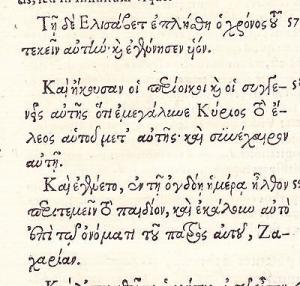 Τῇ δὲ Ελισάβετ ἐπλήσθη ὁ χρόνος τοῦ 57
τεκεῖν αὐτὴν, καὶ ἐγέννησεν υἱόν.
Καὶ ἤκουσαν οἱ περίοικοι καὶ οἱ συγγε-
νεῖς αὐτῆς ὅτι ἐμεγάλυνε Κύριος τὸ ἔ-
λεος αὑτοῦ μετ' αὐτῆς· καὶ συνέχαιρον
αὐτῇ.
Καὶ ἐγένετο, ἐν τῇ ὀγδόῃ ἡμέρᾳ ἦλθον
περιτεμεῖν τὸ παιδίον, καὶ ἐκάλουν αὐτὸ
ἐπὶ τῷ ὀνόματι τοῦ πατρὸς αὐτοῦ, Ζα-
χαρίαν.